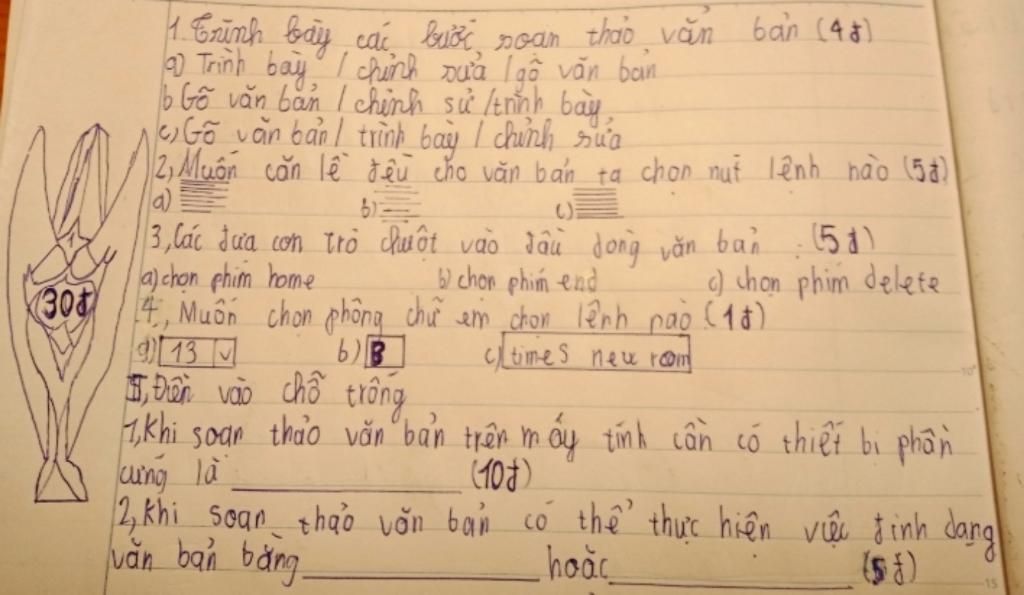 1. Trình bày các bước soạn thảo văn bản (4đ)
a) Trình bày / chỉnh sửa / gõ văn bản
b Gõ văn bản / chỉnh sử / trình bày
c) Gõ văn bản / trình bày / chỉnh sửa
2, Muốn căn lề đều cho văn bản ta chọn nút lệnh nào (5đ)
a) b) c)
3, Các đưa con trỏ chuột vào đầu dòng văn bản. (5đ)
a) chọn phím home b) chọn phím end c) chọn phím delete
30đ
4, Muốn chọn phông chữ em chọn lệnh nào (1đ)
a) 13 b) B c) times new room
II, Điền vào chỗ trống
1, Khi soạn thảo văn bản trên máy tính cần có thiết bị phần
cứng là __________ (10đ)
2, Khi soạn thảo văn bản có thể thực hiện việc định dạng
văn bản bằng __________ hoặc __________ (5đ)